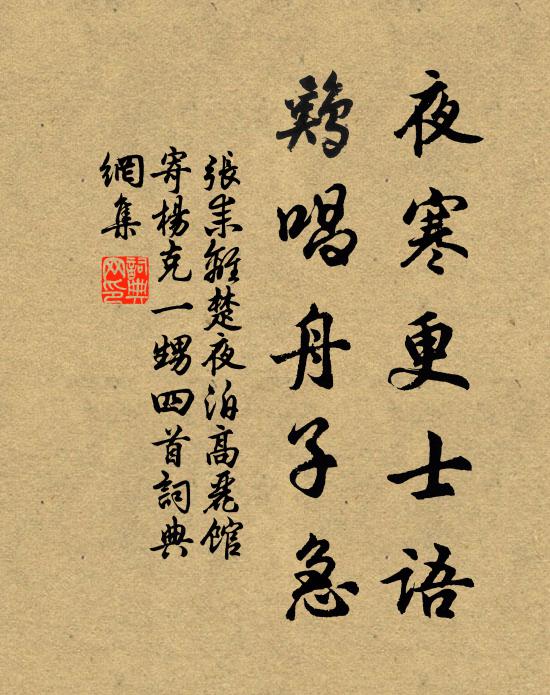 夜寒更士語
鷄唱舟子急
張耒離楚夜泊高麗館
寄楊克一甥四首詞典
網集
詞典
网印